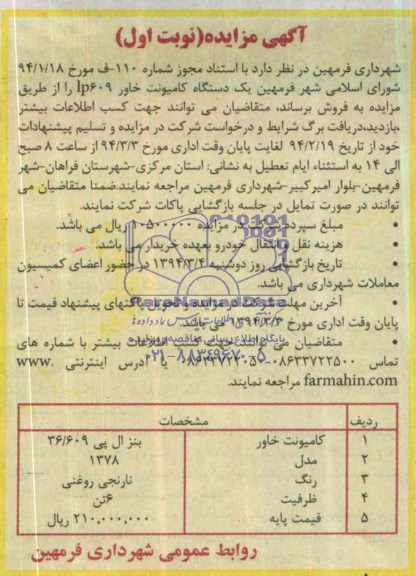 آگهی مزایده(نوبت اول)
شهرداری فرمهین در نظر دارد با استناد مجوز شماره ۱۱۰-ف مورخ ۹۴/۱/۱۸
شورای اسلامی شهر فرمهین یک دستگاه کامیونت خاور lp۶۰۹ را از طریق
مزایده به فروش برساند، متقاضیان می توانند جهت کسب اطلاعات بیشتر
،بازدید،دریافت برگ شرایط و درخواست شرکت در مزایده و تسلیم پیشنهادات
خود از تاریخ ۹۴/۲/۱۹ لغایت پایان وقت اداری مورخ ۹۴/۳/۳ از ساعت ۸ صبح
الی ۱۴ به استثناء ایام تعطیل به نشانی: استان مرکزی-شهرستان فراهان-شهر
فرمهین-بلوار امیرکبیر-شهرداری فرمهین مراجعه نمایند.ضمنا متقاضیان می
توانند در صورت تمایل در جلسه بازگشایی پاکات شرکت نمایند.
• مبلغ سپرده شرکت در مزایده ۱۰۵۰۰۰۰۰ ریال می باشد.
• هزینه نقل و انتقال خودرو بعهده خریدار می باشد.
• تاریخ بازگشایی روز دوشنبه ۱۳۹۴/۳/۴ در حضور اعضای کمیسیون
معاملات شهرداری می باشد.
• آخرین مهلت شرکت در مزایده و تحویل پاکتهای پیشنهاد قیمت تا
پایان وقت اداری مورخ ۱۳۹۴/۳/۳ می باشد.
• متقاضیان می توانند جهت کسب اطلاعات بیشتر با شماره های
تماس ۰۸۶۳۳۷۲۲۵۰۰ یا آدرس اینترنتی www.
farmahin.com مراجعه نمایند.
پایگاه اطلاع رسانی مناقصه و مزایده
۰۲۱-۸۸۳۴۹۶۷۰-۵
ردیف مشخصات
۱ کامیونت خاور بنز ال پی ۳۶/۶۰۹
۲ مدل ۱۳۷۸
۳ رنگ نارنجی روغنی
۴ ظرفیت ۶تن
۵ قیمت پایه ۲۱۰,۰۰۰,۰۰۰ ریال
روابط عمومی شهرداری فرمهین